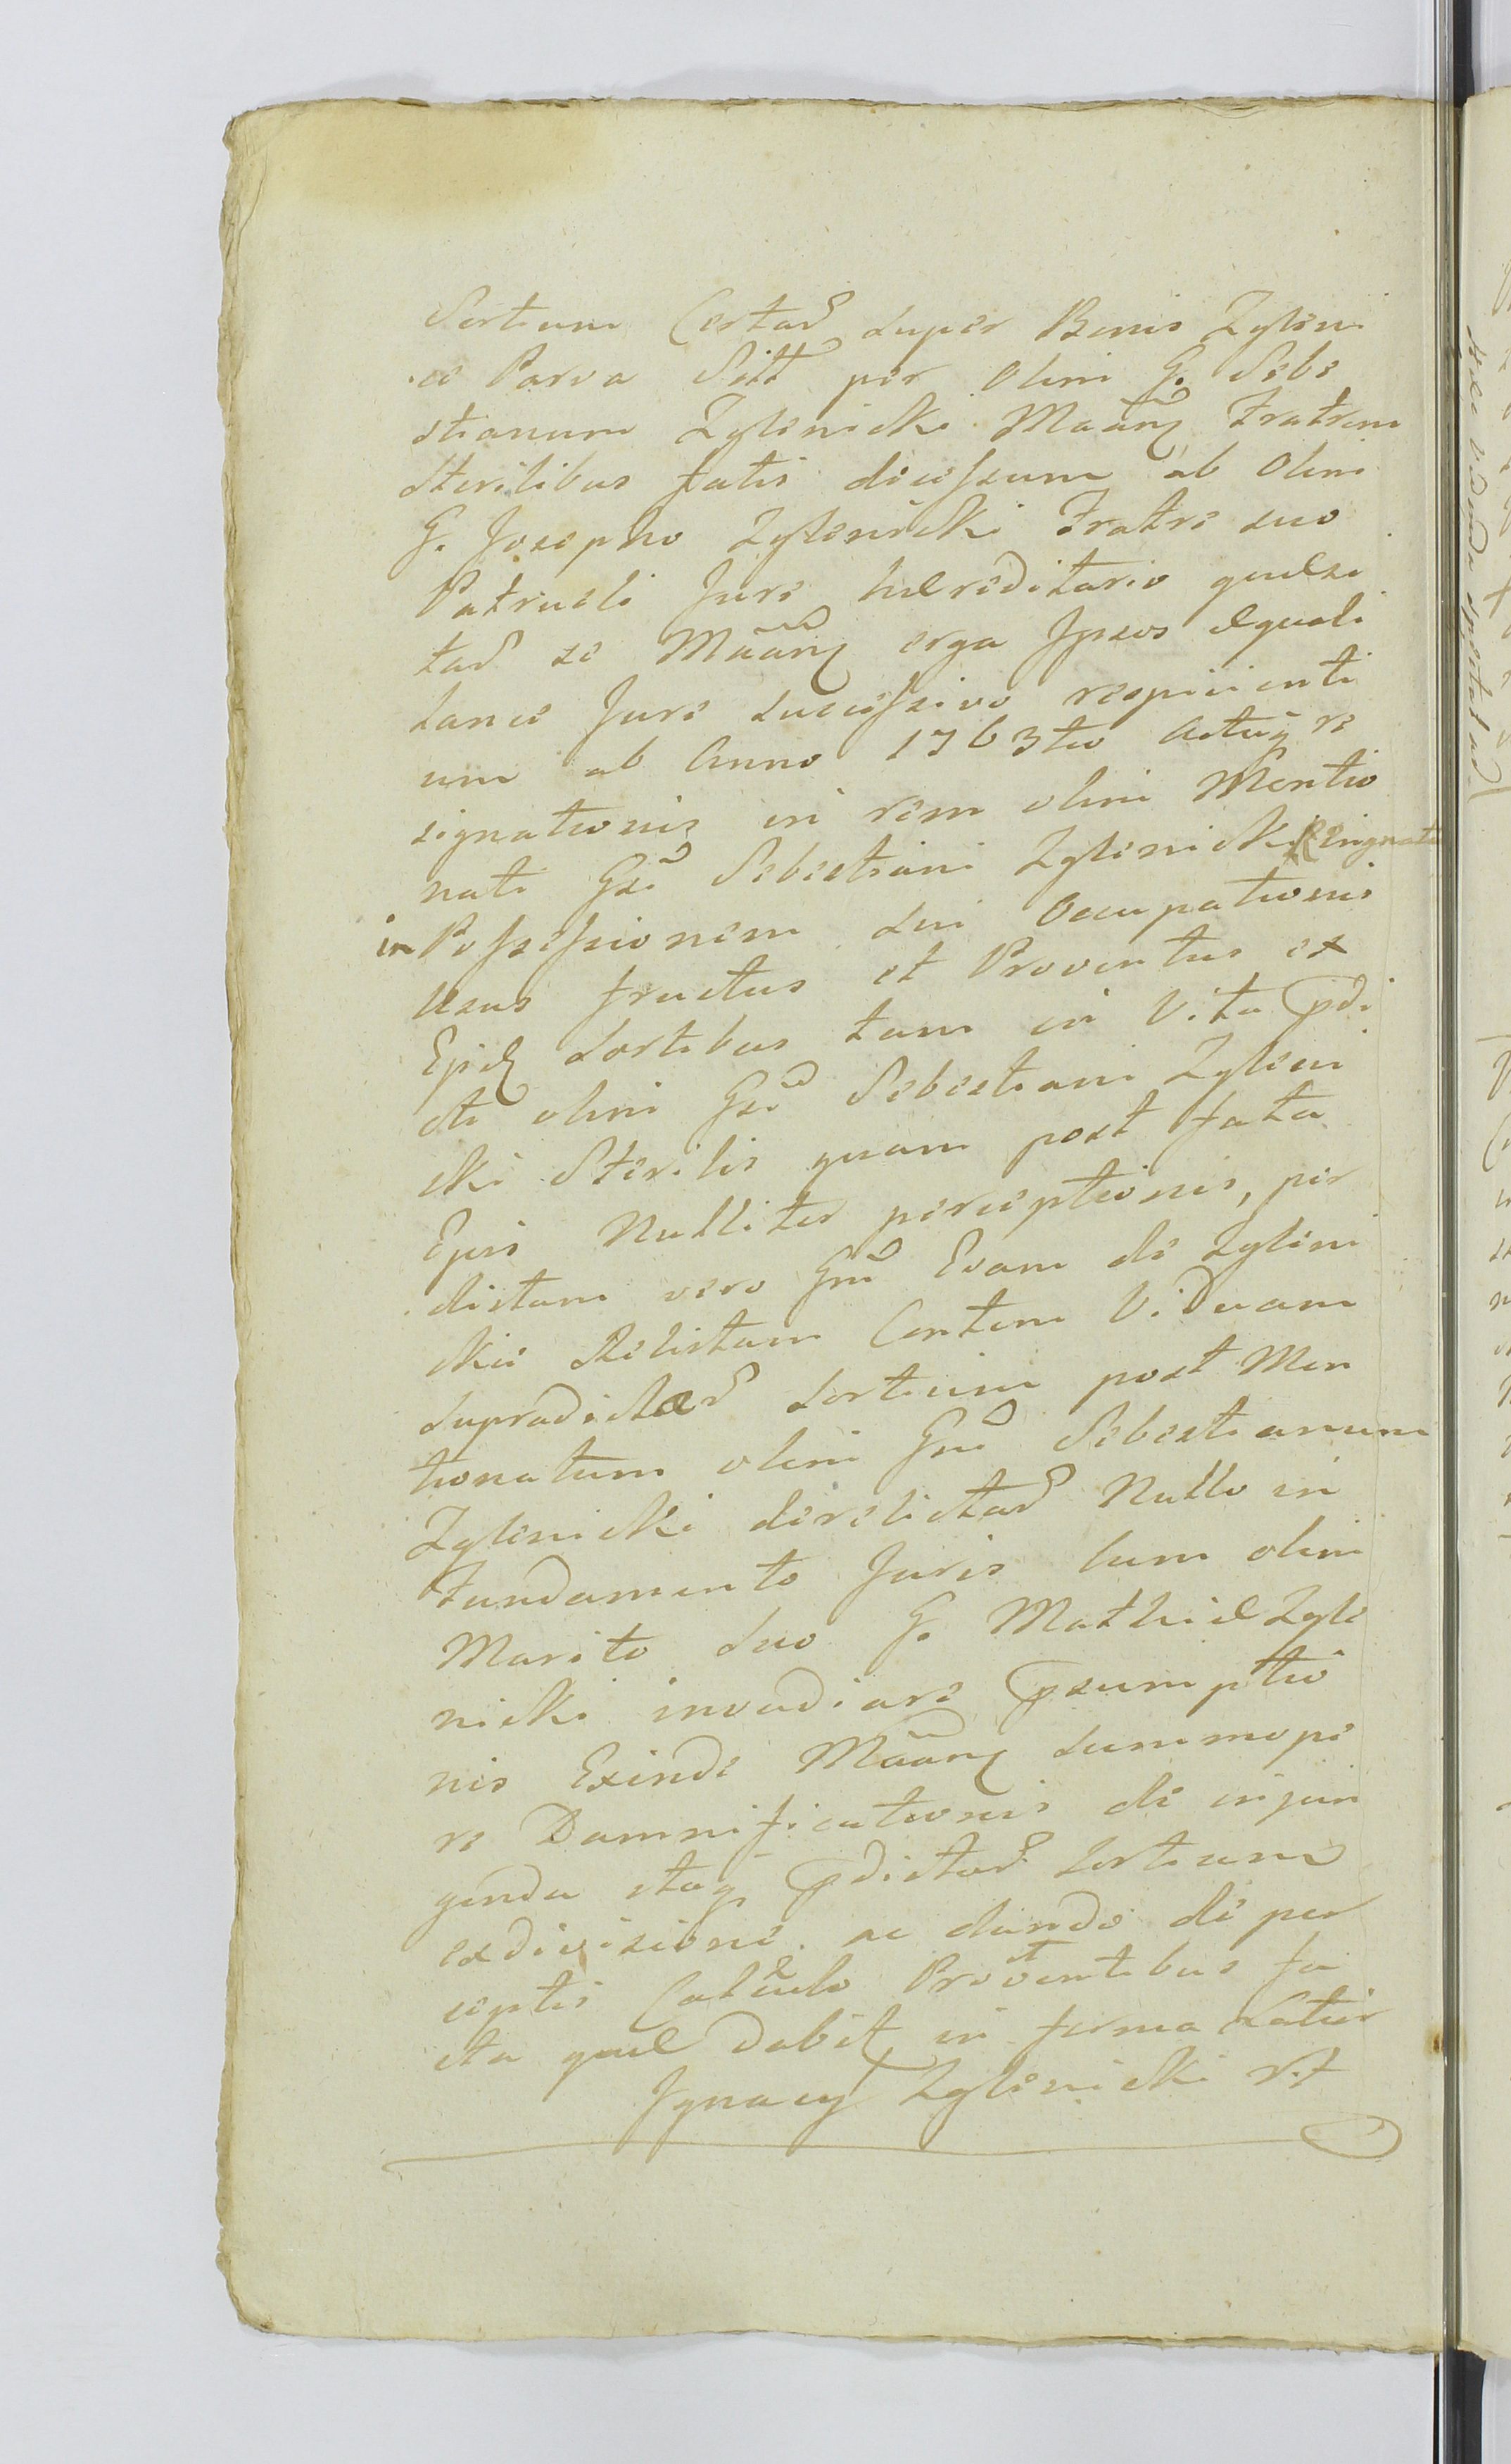 Sortium Certaru super Bonis Zgleni
ce Parva Sitt per Olim G. Sebe
stianum Zglenicki Maāng Fratrem
Sterilibus fatis decessum ab Olim
G. Josepho Zglenicki Fratre suo
Patrueli Jure hæreditario quæsi
tar se Maāng erga Ipsos æquali
lance Jure Successivo respicienti
um ab Anno 1763tio Actuq re
signationis in rem olim Mentio
nati Gsi Sebestiani Zglenicki Resignata
in Possessionem sui Occupationis
Usus fructus et Proventus ex
Ejsd Sortibus tam in Vita pdi
cti olim Gsi Sebestiani Zgleni
cki Sterilis quam post fata
Ejus Nulliter perceptionis, per
dictam vero Gm Evam de Zgleni
ckie Relictam Contem Viduam
supradictar Sortium post Men
tionatum olim Gm Sebestianum
Zglenicki derelictar Nullo in
Fundamento Juris cum olim
Marito suo G. Mathiæ Zgle
nicki invadiare psumptio
nis Exinde Maāng summope
re Damnificationis de injun
genda itaq pdictar Sortium
exdivisione ac dando de per
ceptis Calculo Proventibus fa
cta quæ dabit in forma Latior
Ignacy Zglenicki